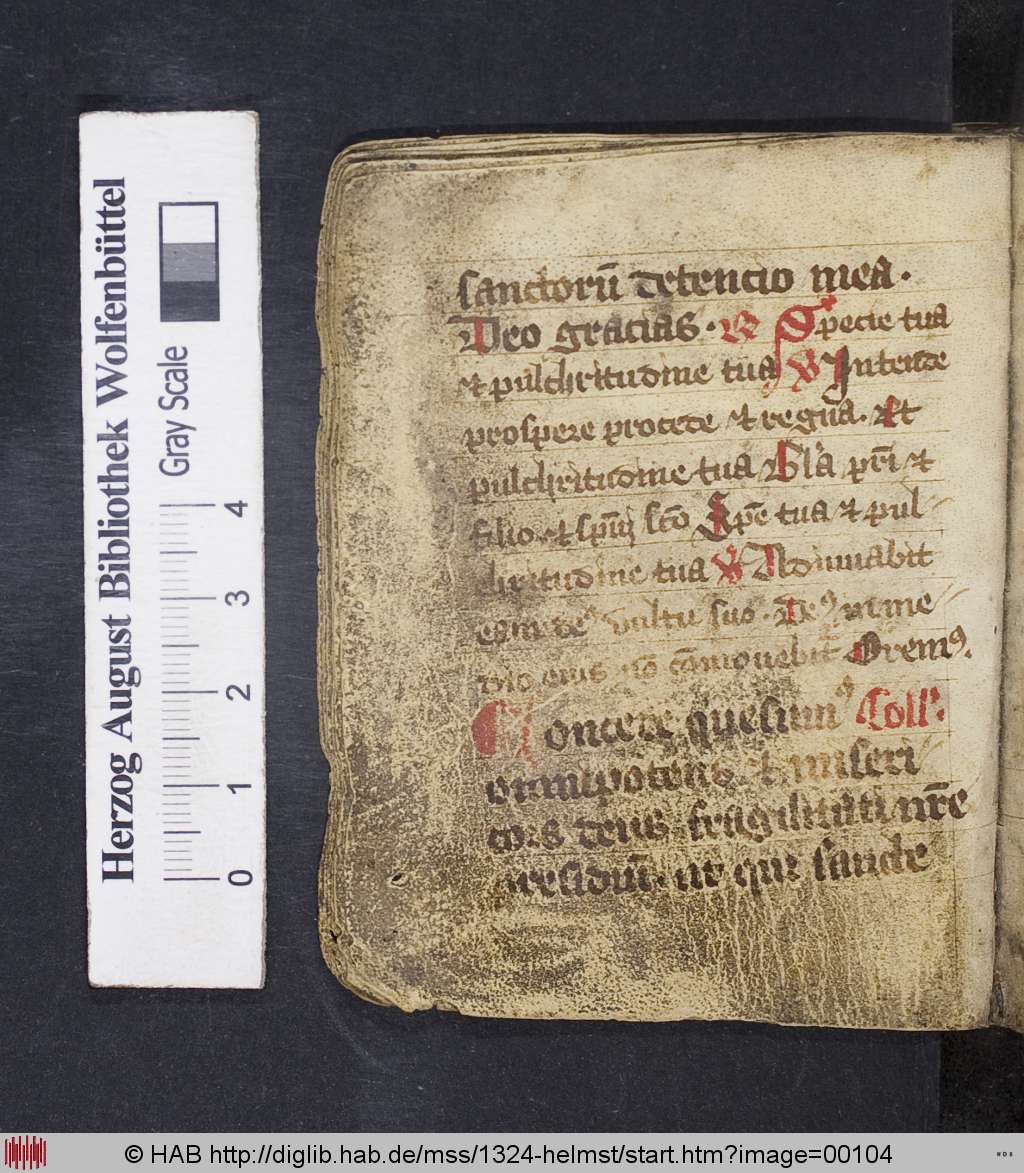 Herzog August Bibliothek Wolfenbüttel
Gray Scale
0 1 2 3 4
sanctorū detencio mea.
Deo gracias. R Specie tua
et pulchritudine tua V Intende
prospere procede et regna. Et
pulchritudine tua Gl'a pr̄i et
filio et sp̄ui sc̄o Spē tua et pul
hritudine tua V Adiuuabit
eam deꝰ vultu suo. Deꝰ in me
dio eius nō cōmouebit̄ Oremꝰ.
Concede quesumꝰ Coll'.
omnipotens et miseri
cors deus fragilitati nr̄e
presidiū. ut qui sancte
© HAB http://diglib.hab.de/mss/1324-helmst/start.htm?image=00104